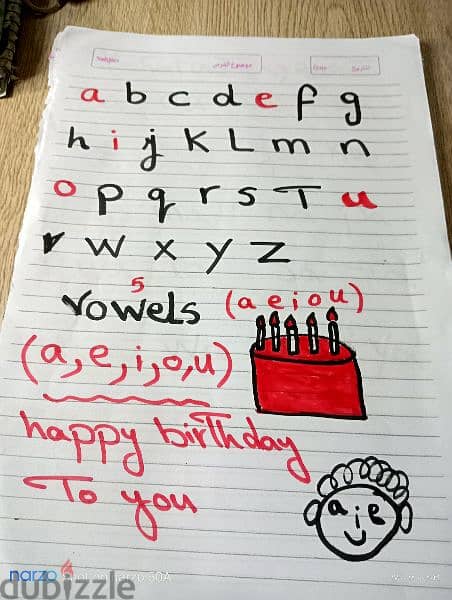 Subject
a b c d e f g
h i j K L m n
o p q r s T u
v w x y z
5
vowels (a e i o u)
(a,e,i,o,u)
happy birthday
To you
a i e
u
narzo
dubizzle